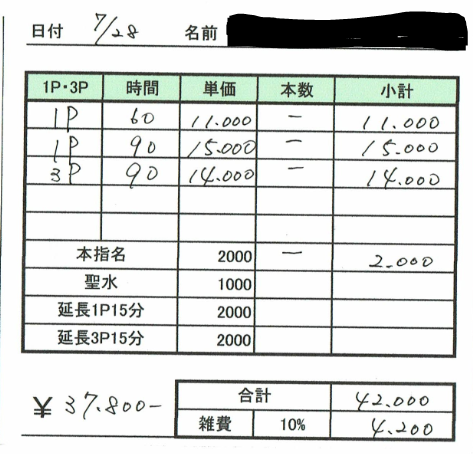 日付 7/28 名前
1P・3P 時間 単価 本数 小計
1P 60 11.000 一 11.000
1P 90 15.000 一 15.000
3P 90 14.000 一 14.000
本指名 2000 一 2.000
聖水 1000
延長1P15分 2000
延長3P15分 2000
合計 42.000
¥ 37.800-
雑費 10% 4.200